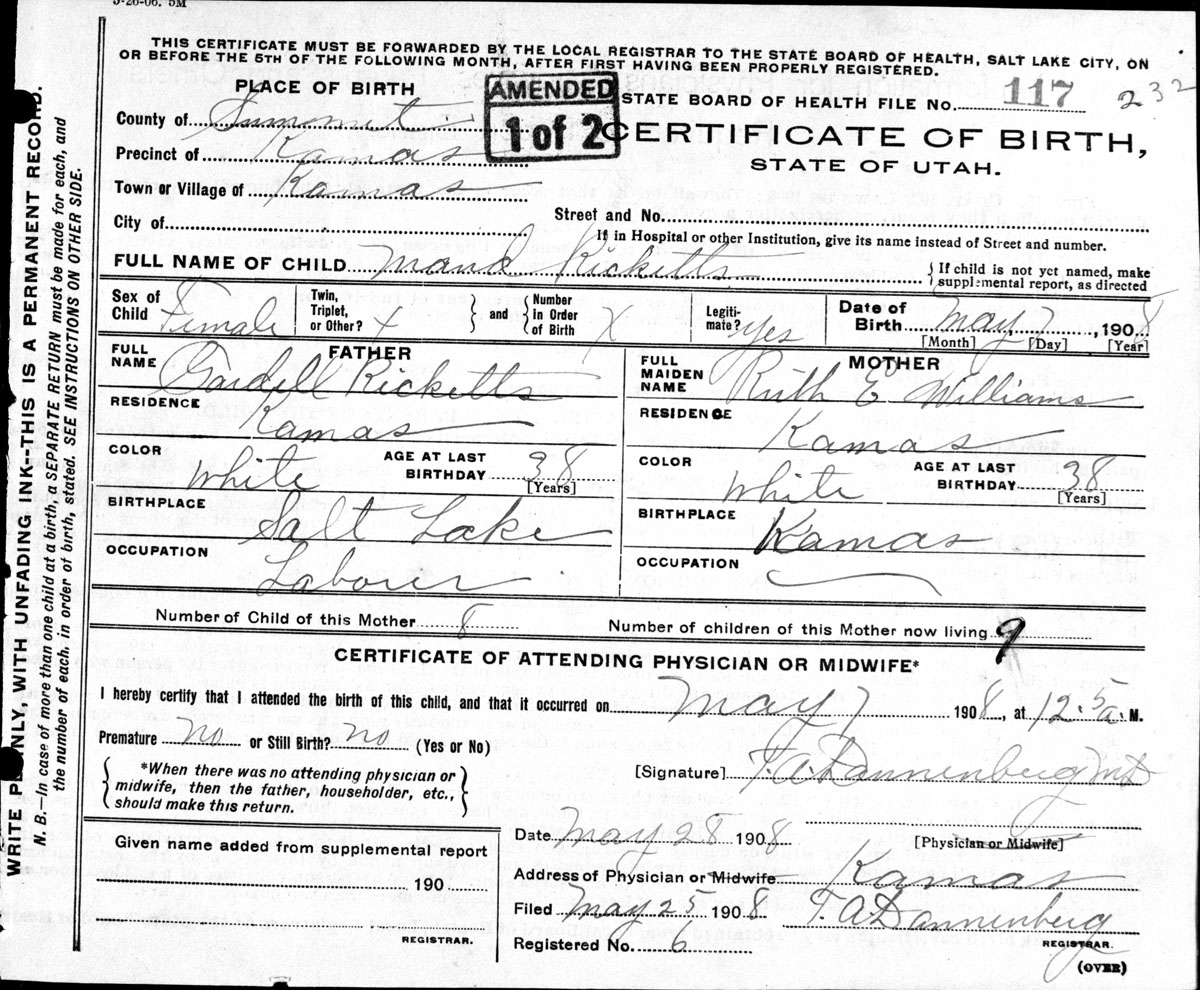 3-26-06. 5M
THIS CERTIFICATE MUST BE FORWARDED BY THE LOCAL REGISTRAR TO THE STATE BOARD OF HEALTH, SALT LAKE CITY, ON
OR BEFORE THE 5TH OF THE FOLLOWING MONTH, AFTER FIRST HAVING BEEN PROPERLY REGISTERED.
PLACE OF BIRTH
AMENDED
1 of 2
STATE BOARD OF HEALTH FILE No. 117 232
County of Summit
CERTIFICATE OF BIRTH,
Precinct of Kamas
STATE OF UTAH.
Town or Village of Kamas
Street and No.
City of
If in Hospital or other Institution, give its name instead of Street and number.
FULL NAME OF CHILD Maud Ricketts
If child is not yet named, make
supplemental report, as directed
Sex of Child Female Twin, Triplet, or Other? X and Number in Order of Birth X Legiti-mate? Yes Date of Birth May 7, 1908
[Month] [Day] [Year]
FATHER
FULL NAME Gardell Ricketts
RESIDENCE Kamas
COLOR White AGE AT LAST BIRTHDAY 38
[Years]
BIRTHPLACE Salt Lake
OCCUPATION Labourer
MOTHER
FULL MAIDEN NAME Ruth E Williams
RESIDENCE Kamas
COLOR White AGE AT LAST BIRTHDAY 38
[Years]
BIRTHPLACE Kamas
OCCUPATION
Number of Child of this Mother 8 Number of children of this Mother now living 9
CERTIFICATE OF ATTENDING PHYSICIAN OR MIDWIFE*
I hereby certify that I attended the birth of this child, and that it occurred on May 7 1908, at 12.5 a. M.
Premature no or Still Birth? no (Yes or No)
*When there was no attending physician or
midwife, then the father, householder, etc.,
should make this return.
[Signature] F. A. Dannenberg MD
[Physician or Midwife]
Given name added from supplemental report
190
REGISTRAR.
Date May 28 1908
Address of Physician or Midwife Kamas
Filed May 25 1908 F. A Dannenberg
REGISTRAR.
Registered No. 6
(OVER)
WRITE PLAINLY, WITH UNFADING INK--THIS IS A PERMANENT RECORD.
N. B.--In case of more than one child at a birth, a SEPARATE RETURN must be made for each, and
the number of each, in order of birth, stated. SEE INSTRUCTIONS ON OTHER SIDE.